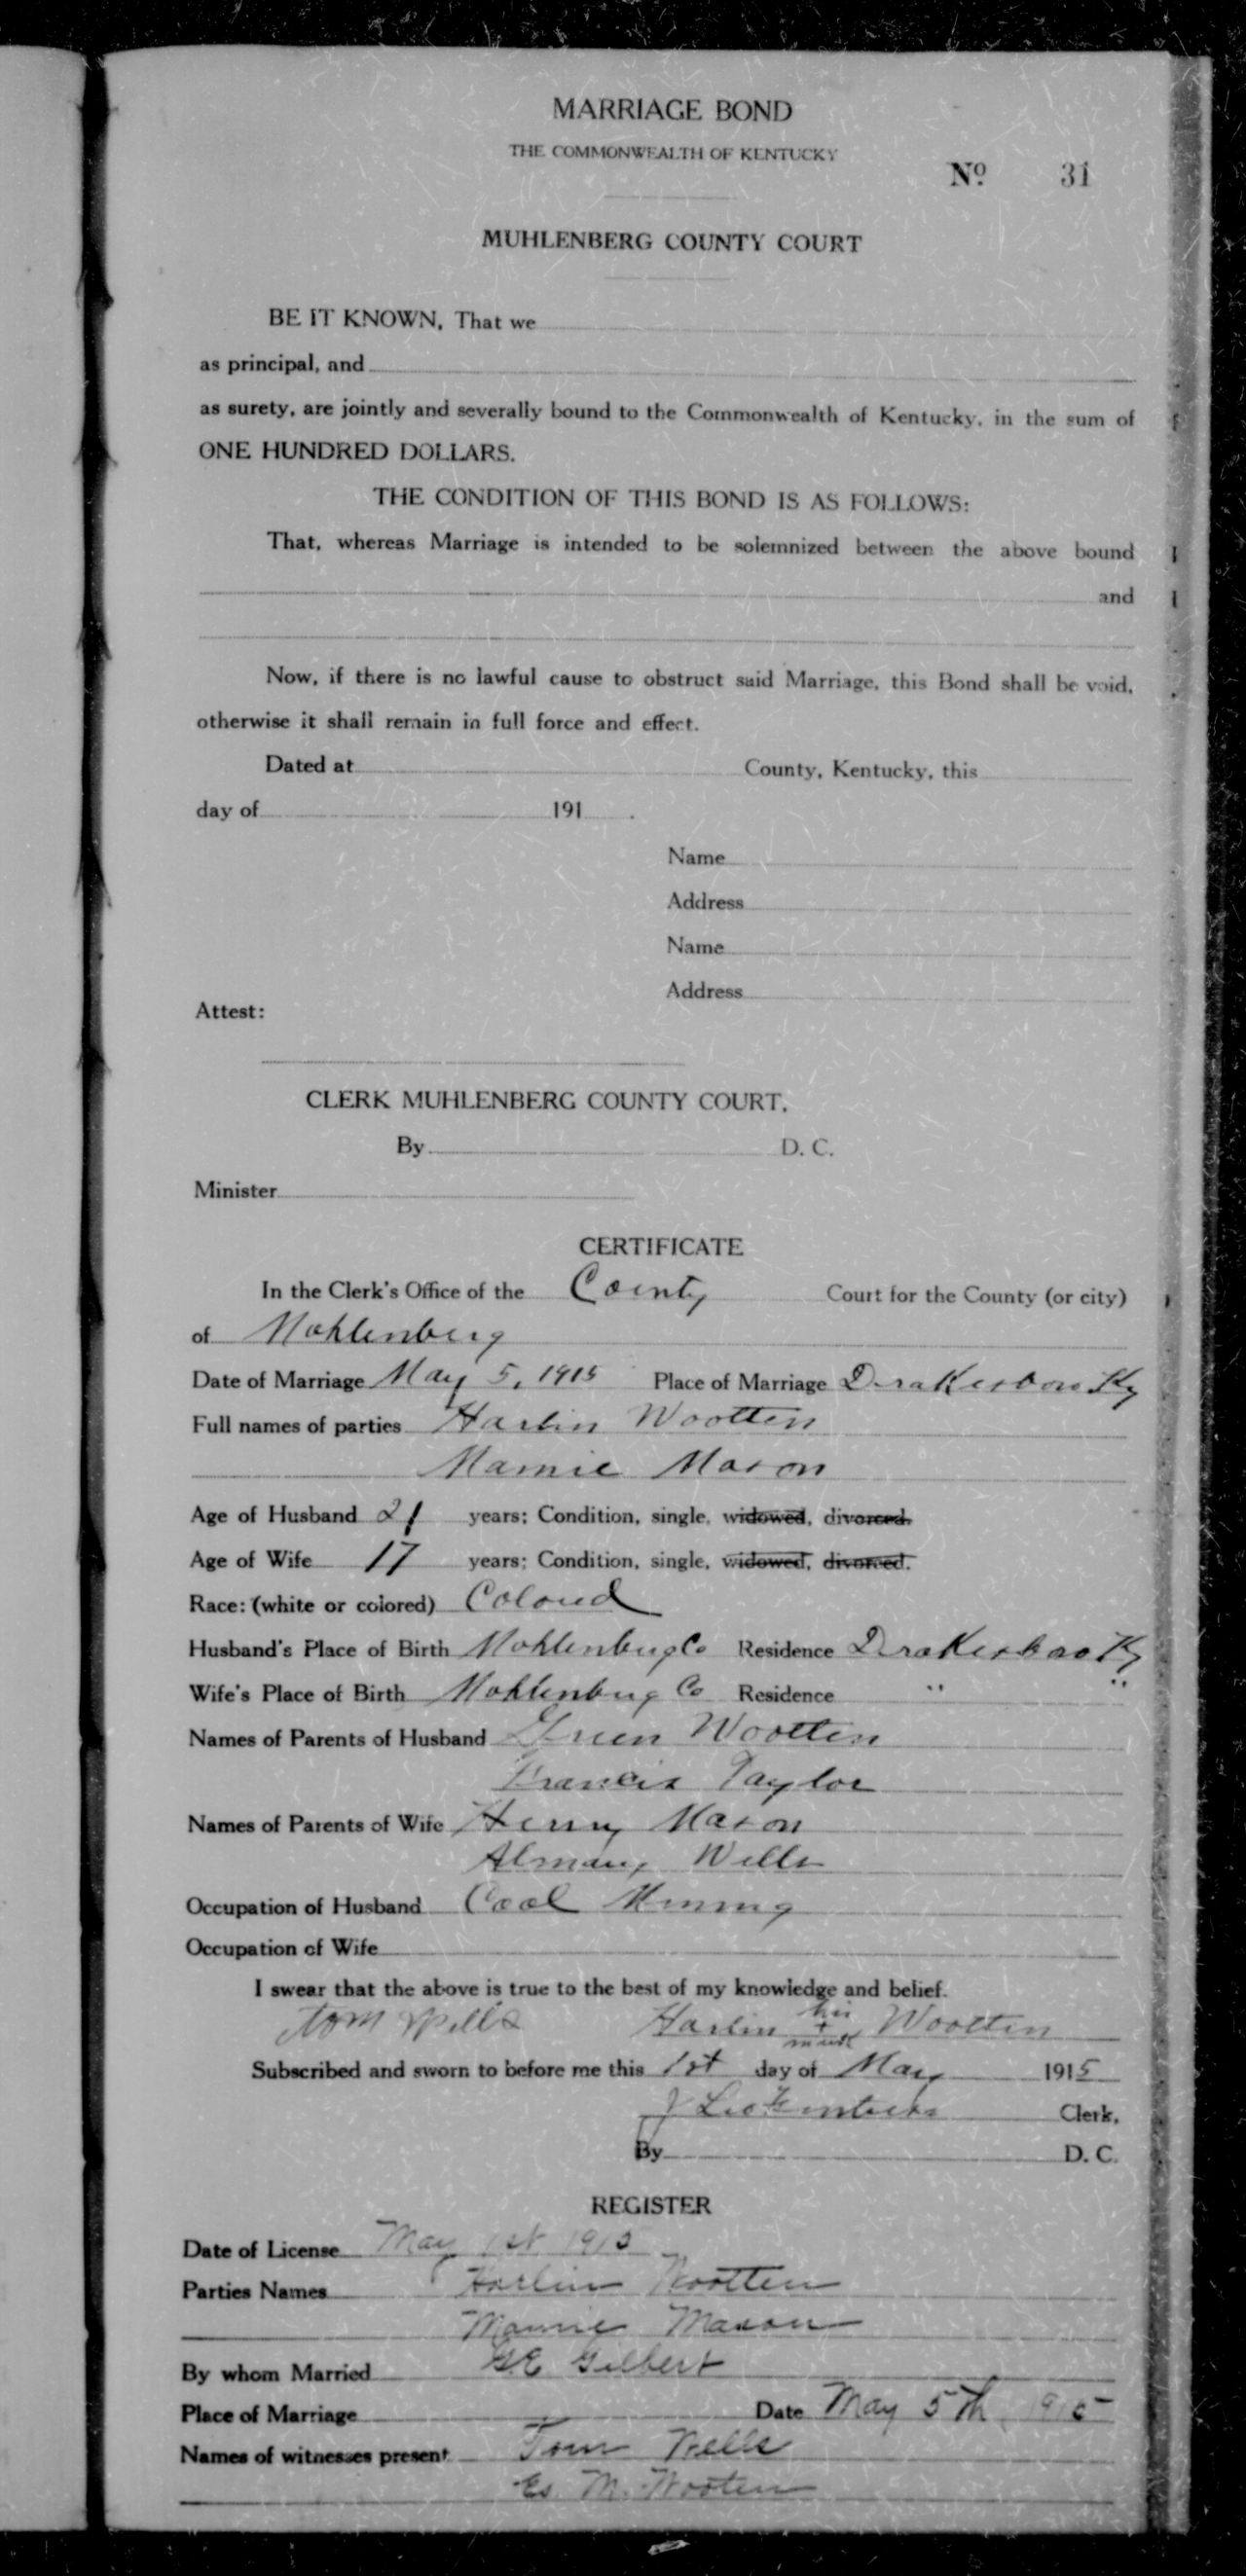 MARRIAGE BOND
THE COMMONWEALTH OF KENTUCKY
No. 31
MUHLENBERG COUNTY COURT
BE IT KNOWN, That we
as principal, and
as surety, are jointly and severally bound to the Commonwealth of Kentucky, in the sum of
ONE HUNDRED DOLLARS.
THE CONDITION OF THIS BOND IS AS FOLLOWS:
That, whereas Marriage is intended to be solemnized between the above bound
and
Now, if there is no lawful cause to obstruct said Marriage, this Bond shall be void,
otherwise it shall remain in full force and effect.
Dated at County, Kentucky, this
day of 191 .
Name
Address
Name
Address
Attest:
CLERK MUHLENBERG COUNTY COURT.
By D. C.
Minister
CERTIFICATE
In the Clerk's Office of the County Court for the County (or city)
of Mohlenberg
Date of Marriage May 5, 1915 Place of Marriage Drakesboro Ky
Full names of parties Harlin Wootten
Mamie Mason
Age of Husband 21 years; Condition, single, widowed, divorced.
Age of Wife 17 years; Condition, single, widowed, divorced.
Race: (white or colored) Colored
Husband's Place of Birth Mohlenberg Co Residence Drakesboro Ky
Wife's Place of Birth Mohlenberg Co Residence " "
Names of Parents of Husband Green Wootten
Francis Taylor
Names of Parents of Wife Henry Mason
Wells
Occupation of Husband Coal Mining
Occupation of Wife
I swear that the above is true to the best of my knowledge and belief.
Tom Wells Harlin his + mark Wootten
Subscribed and sworn to before me this 1st day of May 1915
Clerk.
By D. C.
REGISTER
Date of License May 1st 1915
Parties Names Harlin Wootten
Mamie Mason
By whom Married G E Gilbert
Place of Marriage Date May 5th, 1915
Names of witnesses present Tom Wells
M. Wooten